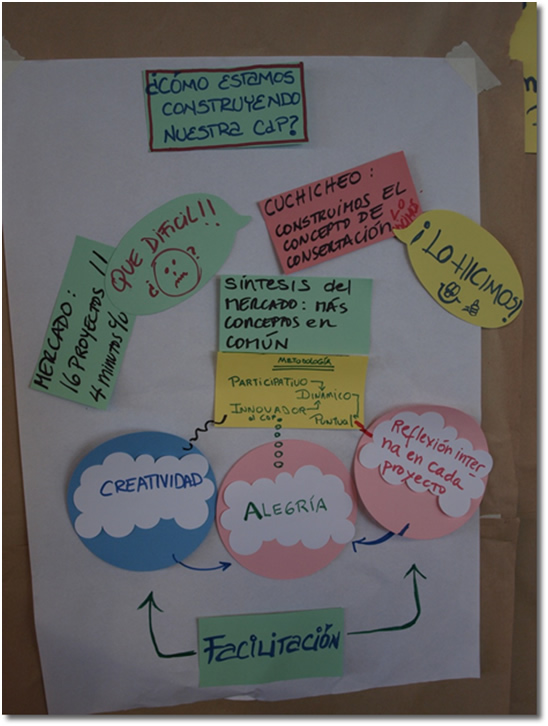 ¿CÓMO ESTAMOS
CONSTRUYENDO
NUESTRA CdP?
CUCHICHEO:
CONSTRUIMOS EL
CONCEPTO DE
CONSERTACIÓN
¡LO HICIMOS!
QUE DIFICIL!!
¿?
MERCADO:
16 PROYECTOS !!
4 MINUTOS c/u
SÍNTESIS del
MERCADO: MÁS
CONCEPTOS EN
COMÚN
METODOLOGÍA
PARTICIPATIVO
DINÁMICO
INNOVADOR
PUNTUAL
CREATIVIDAD
ALEGRÍA
Reflexión inter-
na en cada
proyecto
FACILITACIÓN